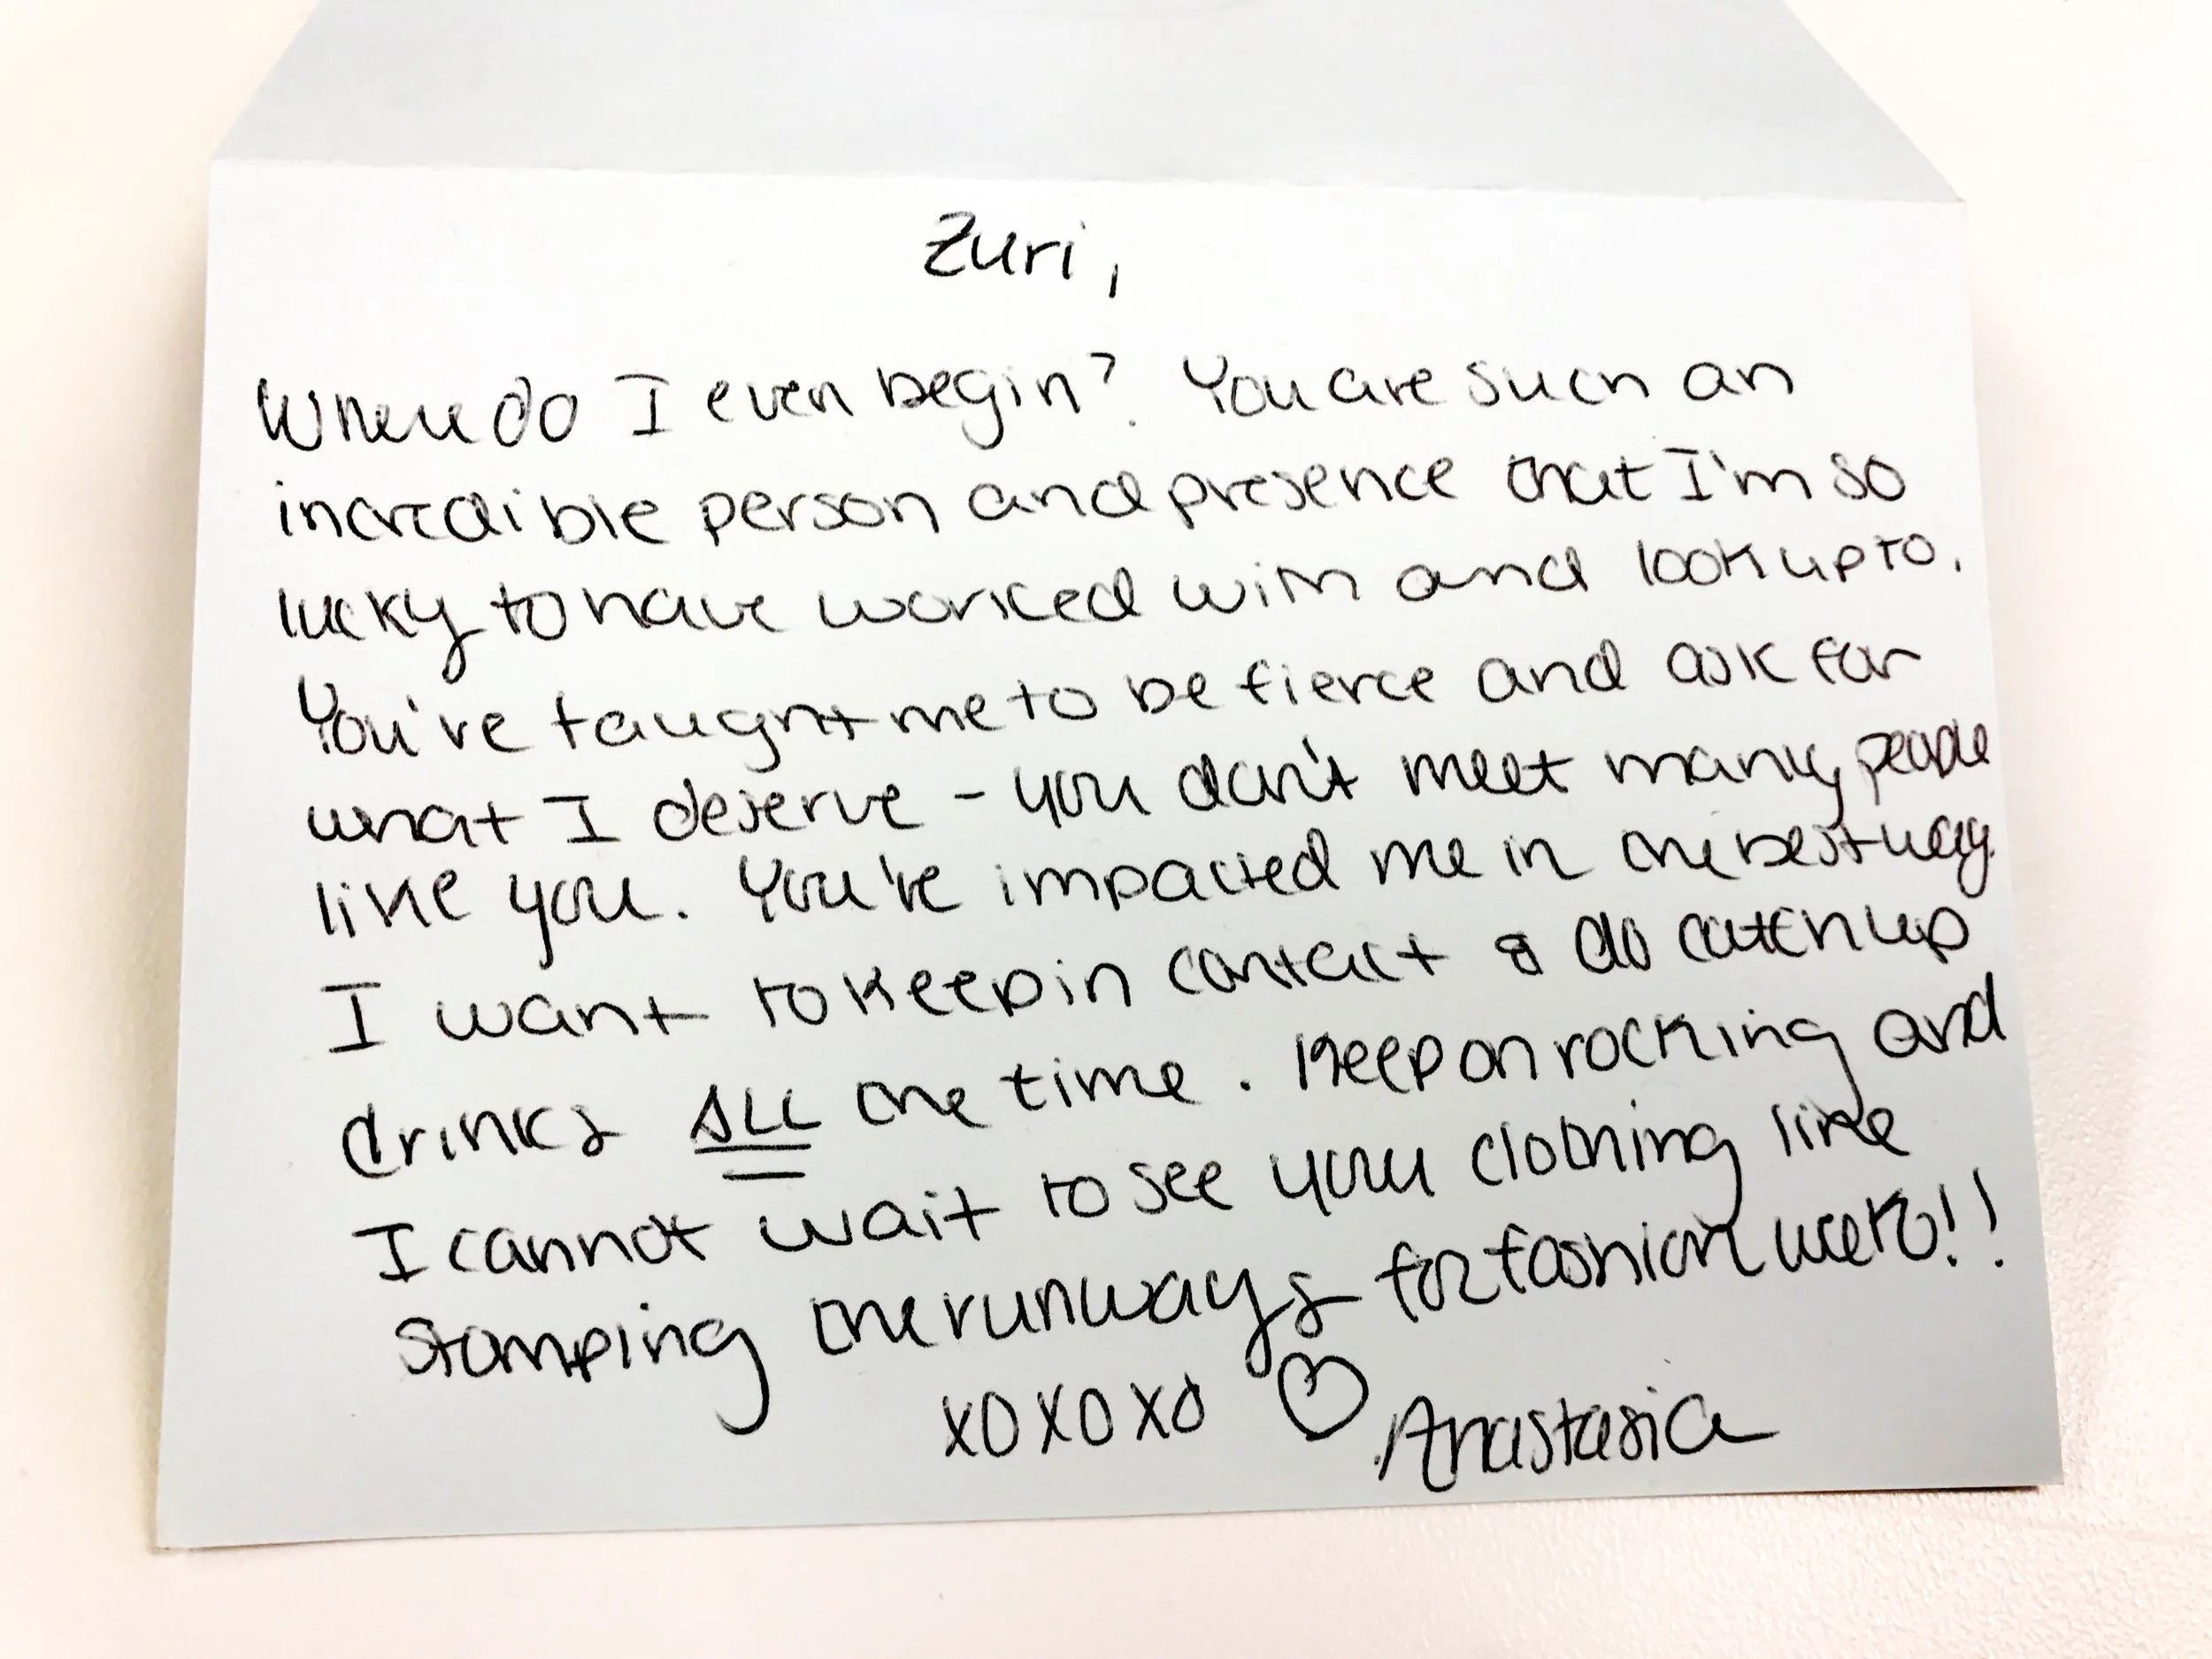 Zuri,
Where do I even begin? You are such an
incredible person and presence that I'm so
lucky to have worked with and look up to.
You've taught me to be fierce and ask for
what I deserve - you don't meet many people
like you. You've impacted me in the best way.
I want to keep in contact & do catch up
drinks ALL the time. Keep on rocking and
I cannot wait to see your clothing line
stomping the runways for fashion week!!
XOXOXO ♡ Anastasia